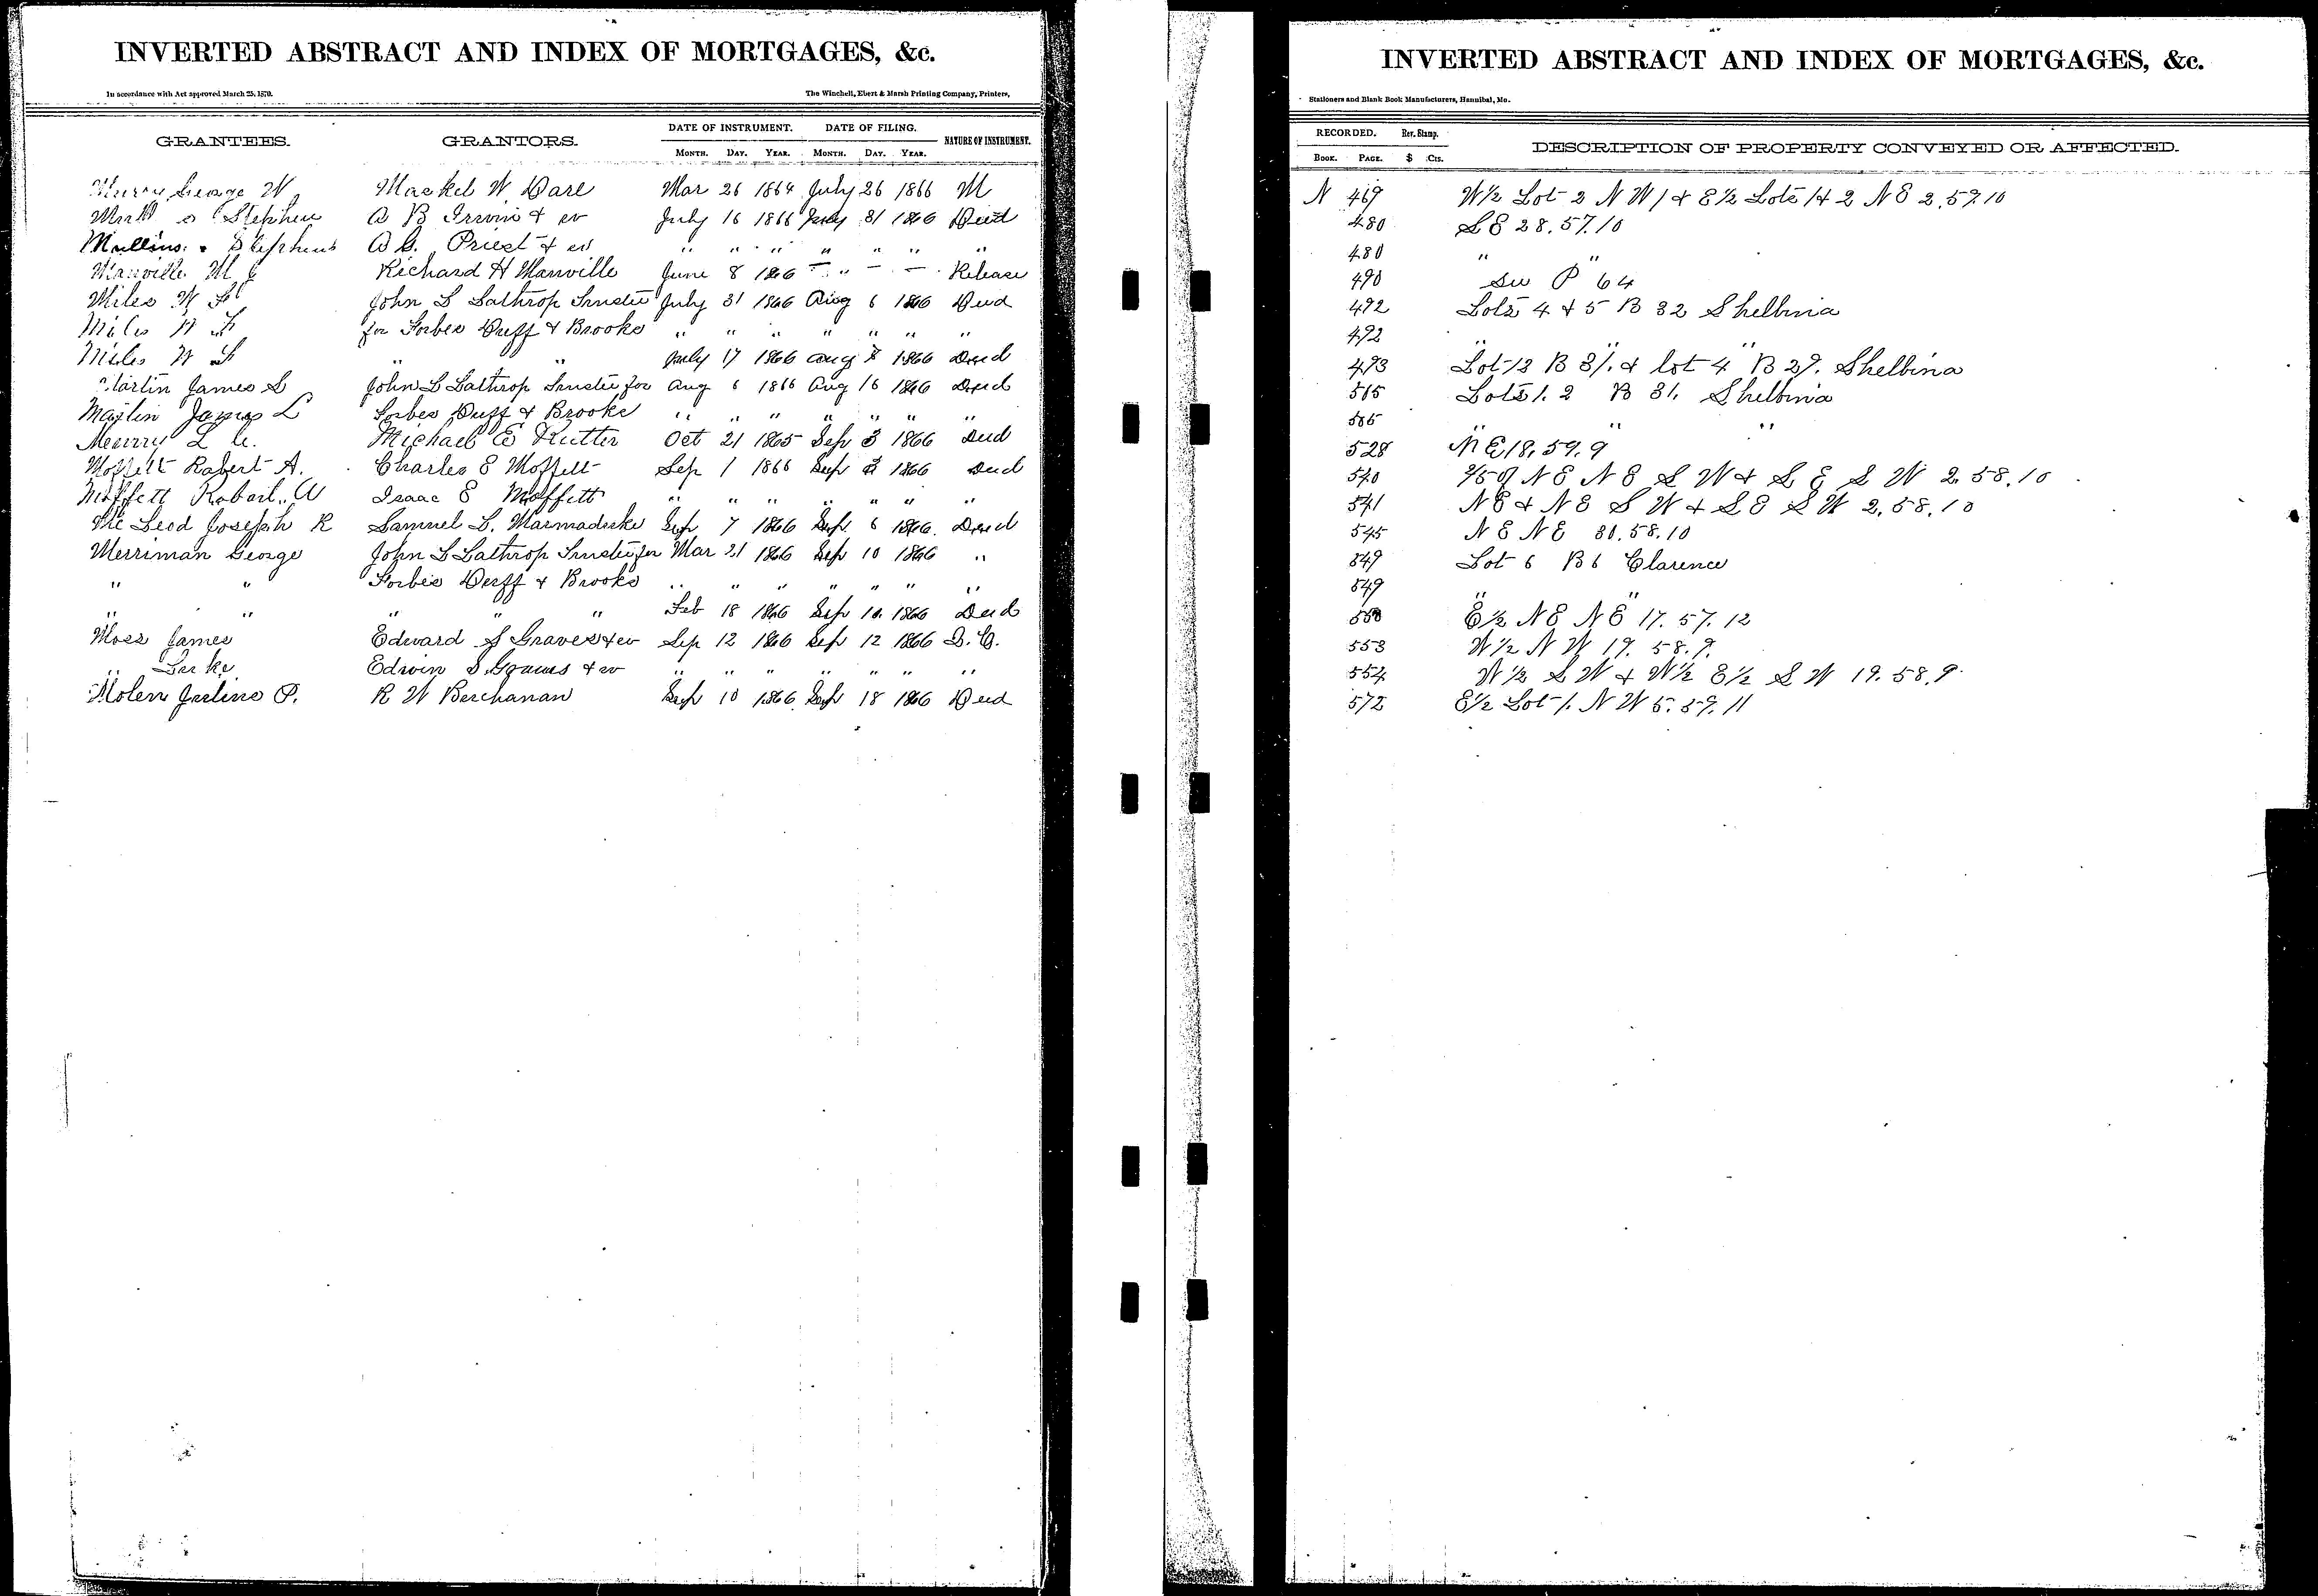 INVERTED ABSTRACT AND INDEX OF MORTGAGES, &c.
In accordance with Act approved March 25, 1870.
The Winchell, Ebert & Marsh Printing Company, Printers,
GRANTEES. GRANTORS. DATE OF INSTRUMENT. DATE OF FILING. NATURE OF INSTRUMENT.
MONTH. DAY. YEAR. MONTH. DAY. YEAR.
Murry George W Mackel W Dare Mar 26 1864 July 26 1866 M
Stephen A B Irwin & w July 16 1866 July 31 1866 Deed
Mullins Stephens A G. Priest & w " " " " " " "
Manville M J Richard H Manville June 8 1866 — " — — Release
Miles W F John L Lathrop Trustee July 31 1866 Aug 6 1866 Deed
Miles W F for Forbes Duff & Brooks " " " " " " "
Miles W F " " July 17 1866 Aug 7 1866 Deed
Martin James L John L Lathrop Trustee for Aug 6 1866 Aug 16 1866 Deed
Martin James L Forbes Duff & Brooks " " " " " " "
L C. Michael E Rutter Oct 21 1865 Sep 3 1866 Deed
Moffett Robert A. Charles E Moffett Sep 1 1866 Sep 3 1866 Deed
Moffett Robert A Isaac E Moffett " " " " " " "
Mc Leod Joseph R Samuel L. Marmaduke Sep 7 1866 Sep 6 1866 Deed
Merriman George John L Lathrop Trustee for Mar 21 1866 Sep 10 1866 "
" " Forbes Duff & Brooks " " " " " " "
" " " " " Feb 18 1866 Sep 10 1866 Deed
Moss James Edward S Graves & w Sep 12 1866 Sep 12 1866 D. G.
" Edwin S Graves & w " " " " " " "
Molen Justine P. R W Buchanan Sep 10 1866 Sep 18 1866 Deed
INVERTED ABSTRACT AND INDEX OF MORTGAGES, &c.
Stationers and Blank Book Manufacturers, Hannibal, Mo.
RECORDED. Rev. Stamp. DESCRIPTION OF PROPERTY CONVEYED OR AFFECTED.
BOOK. PAGE. $ Cts.
N 469 W½ Lot 2 N W 1 & E½ Lots 1 & 2 N E 2. 59. 10
480 S E 28. 57. 10
480 " "
490 See P 64
492 Lots 4 & 5 B 32 Shelbina
492 " " "
493 Lot 13 B 31. & lot 4 B 29. Shelbina
515 Lots 1. 2 B 31. Shelbina
515 " "
528 N E 18. 59. 9
540 2/5 of N E N E S W & S E S W 2. 58. 10
541 N E & N E S W & S E S W 2. 58. 10
545 N E N E 30. 58. 10
549 Lot 6 B 6 Clarence
549 " "
550 E½ N E N E 17. 57. 12
553 W½ N W 19. 58. 9.
554 W½ S W & W½ E½ S W 19. 58. 9.
572 E½ Lot 1. N W 5. 59. 11